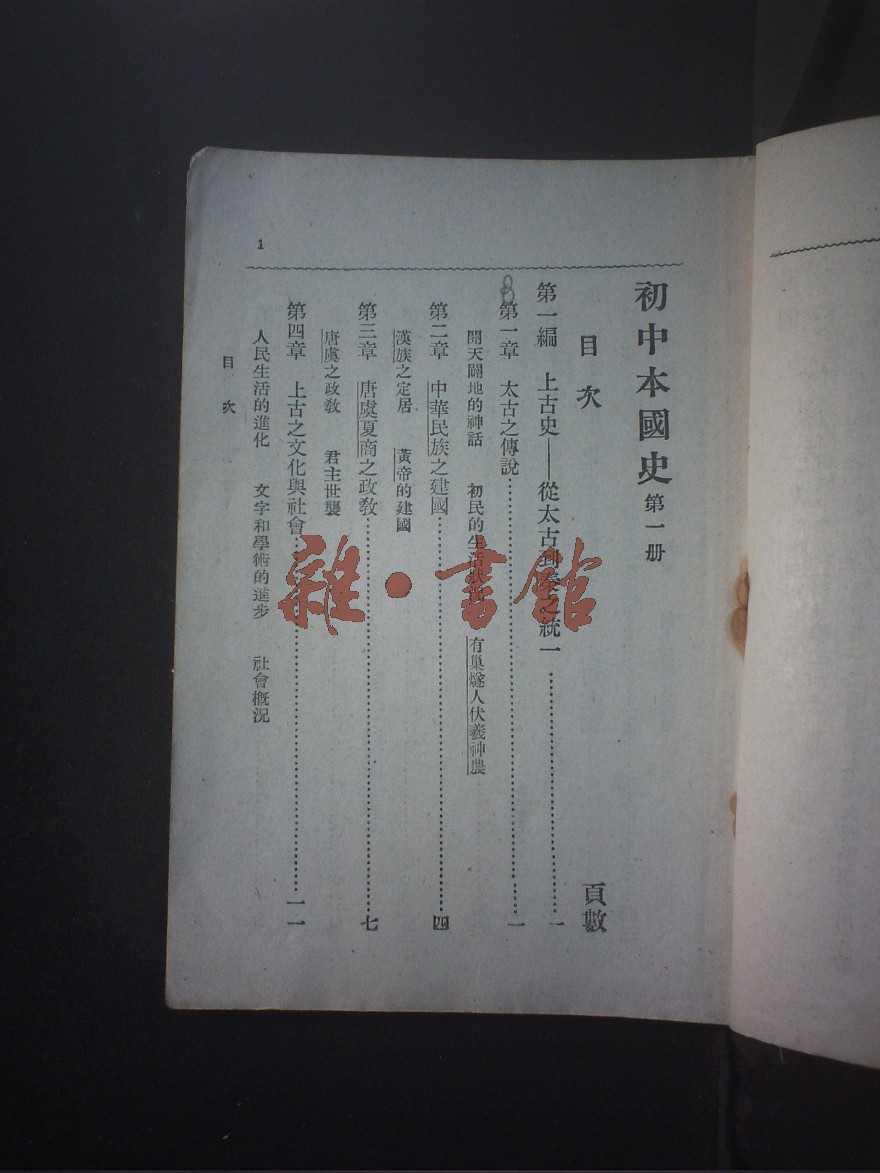 初中本國史 第一册
目次 頁數
第一編 上古史——從太古到秦之統一……一
第一章 太古之傳說……一
開天闢地的神話 初民的生活狀 有巢燧人伏羲神農
第二章 中華民族之建國……四
漢族之定居 黃帝的建國
第三章 唐虞夏商之政教……七
唐虞之政教 君主世襲
第四章 上古之文化與社會……一一
人民生活的進化 文字和學術的進步 社會概況
目次
1
雜·書館